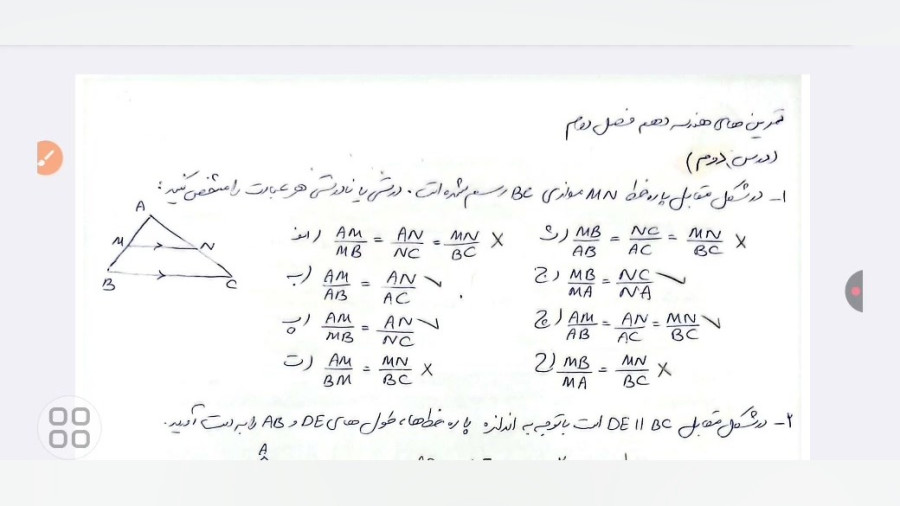 تمرین های هندسه دهم فصل دوم
(درس دوم)
۱- در شکل مقابل پاره خط MN موازی BC رسم شده است. درستی یا نادرستی هر عبارت را مشخص کنید:
A
M
N
B
C
الف) AM/MB = AN/NC = MN/BC ×
ث) MB/AB = NC/AC = MN/BC ×
ب) AM/AB = AN/AC ✓
ج) MB/MA = NC/NA ✓
پ) AM/MB = AN/NC ✓
چ) AM/AB = AN/AC = MN/BC ✓
ت) AM/BM = MN/BC ×
ح) MB/MA = MN/BC ×
۲- در شکل مقابل DE || BC است با توجه به اندازه پاره خط‌ها، طول های DE و AB را به دست آورید.
A